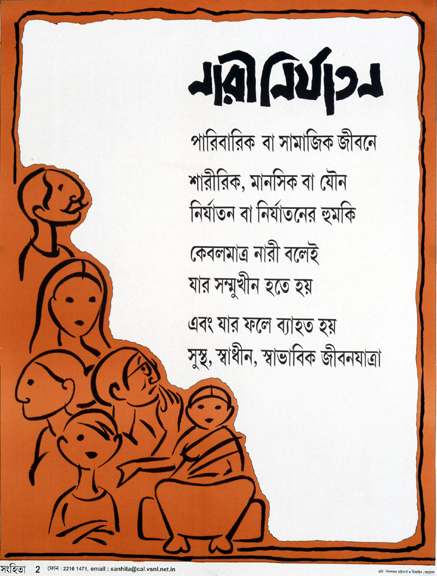 নারী নির্যাতন
পারিবারিক বা সামাজিক জীবনে
শারীরিক, মানসিক বা যৌন
নির্যাতন বা নির্যাতনের হুমকি
কেবলমাত্র নারী বলেই
যার সম্মুখীন হতে হয়
এবং যার ফলে ব্যাহত হয়
সুস্থ, স্বাধীন, স্বাভাবিক জীবনযাত্রা
সংহিতা 2 ফোন : 2216 1471, email : sanhita@cal.vsnl.net.in